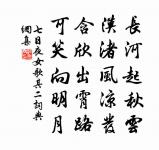 長河起秋雲
漢渚風涼發
含欣出霄路
可笑向明月
七日夜女歌其二 詞典
網集